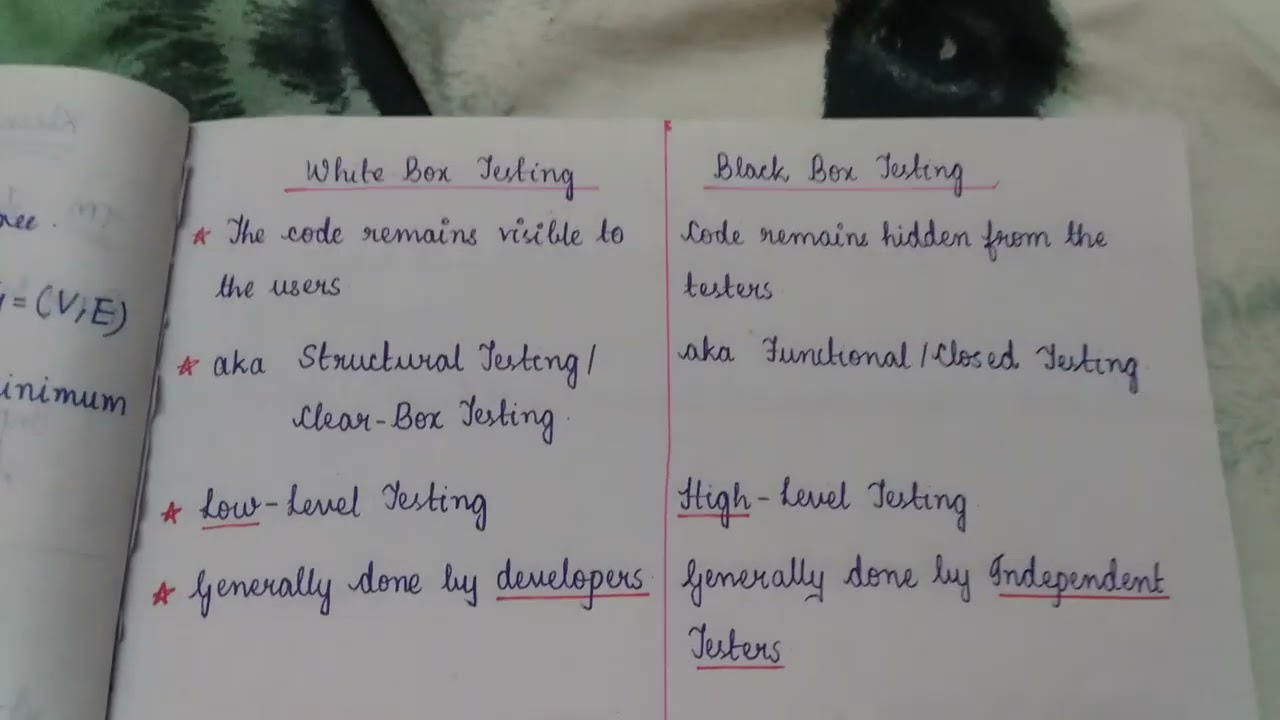 = (V, E)
White Box Testing
★ The code remains visible to
the users
★ aka Structural Testing/
Clear-Box Testing.
★ Low-Level Testing
★ Generally done by developers
Black Box Testing
Code remains hidden from the
testers
aka Functional/Closed Testing
High-Level Testing
Generally done by Independent
Testers